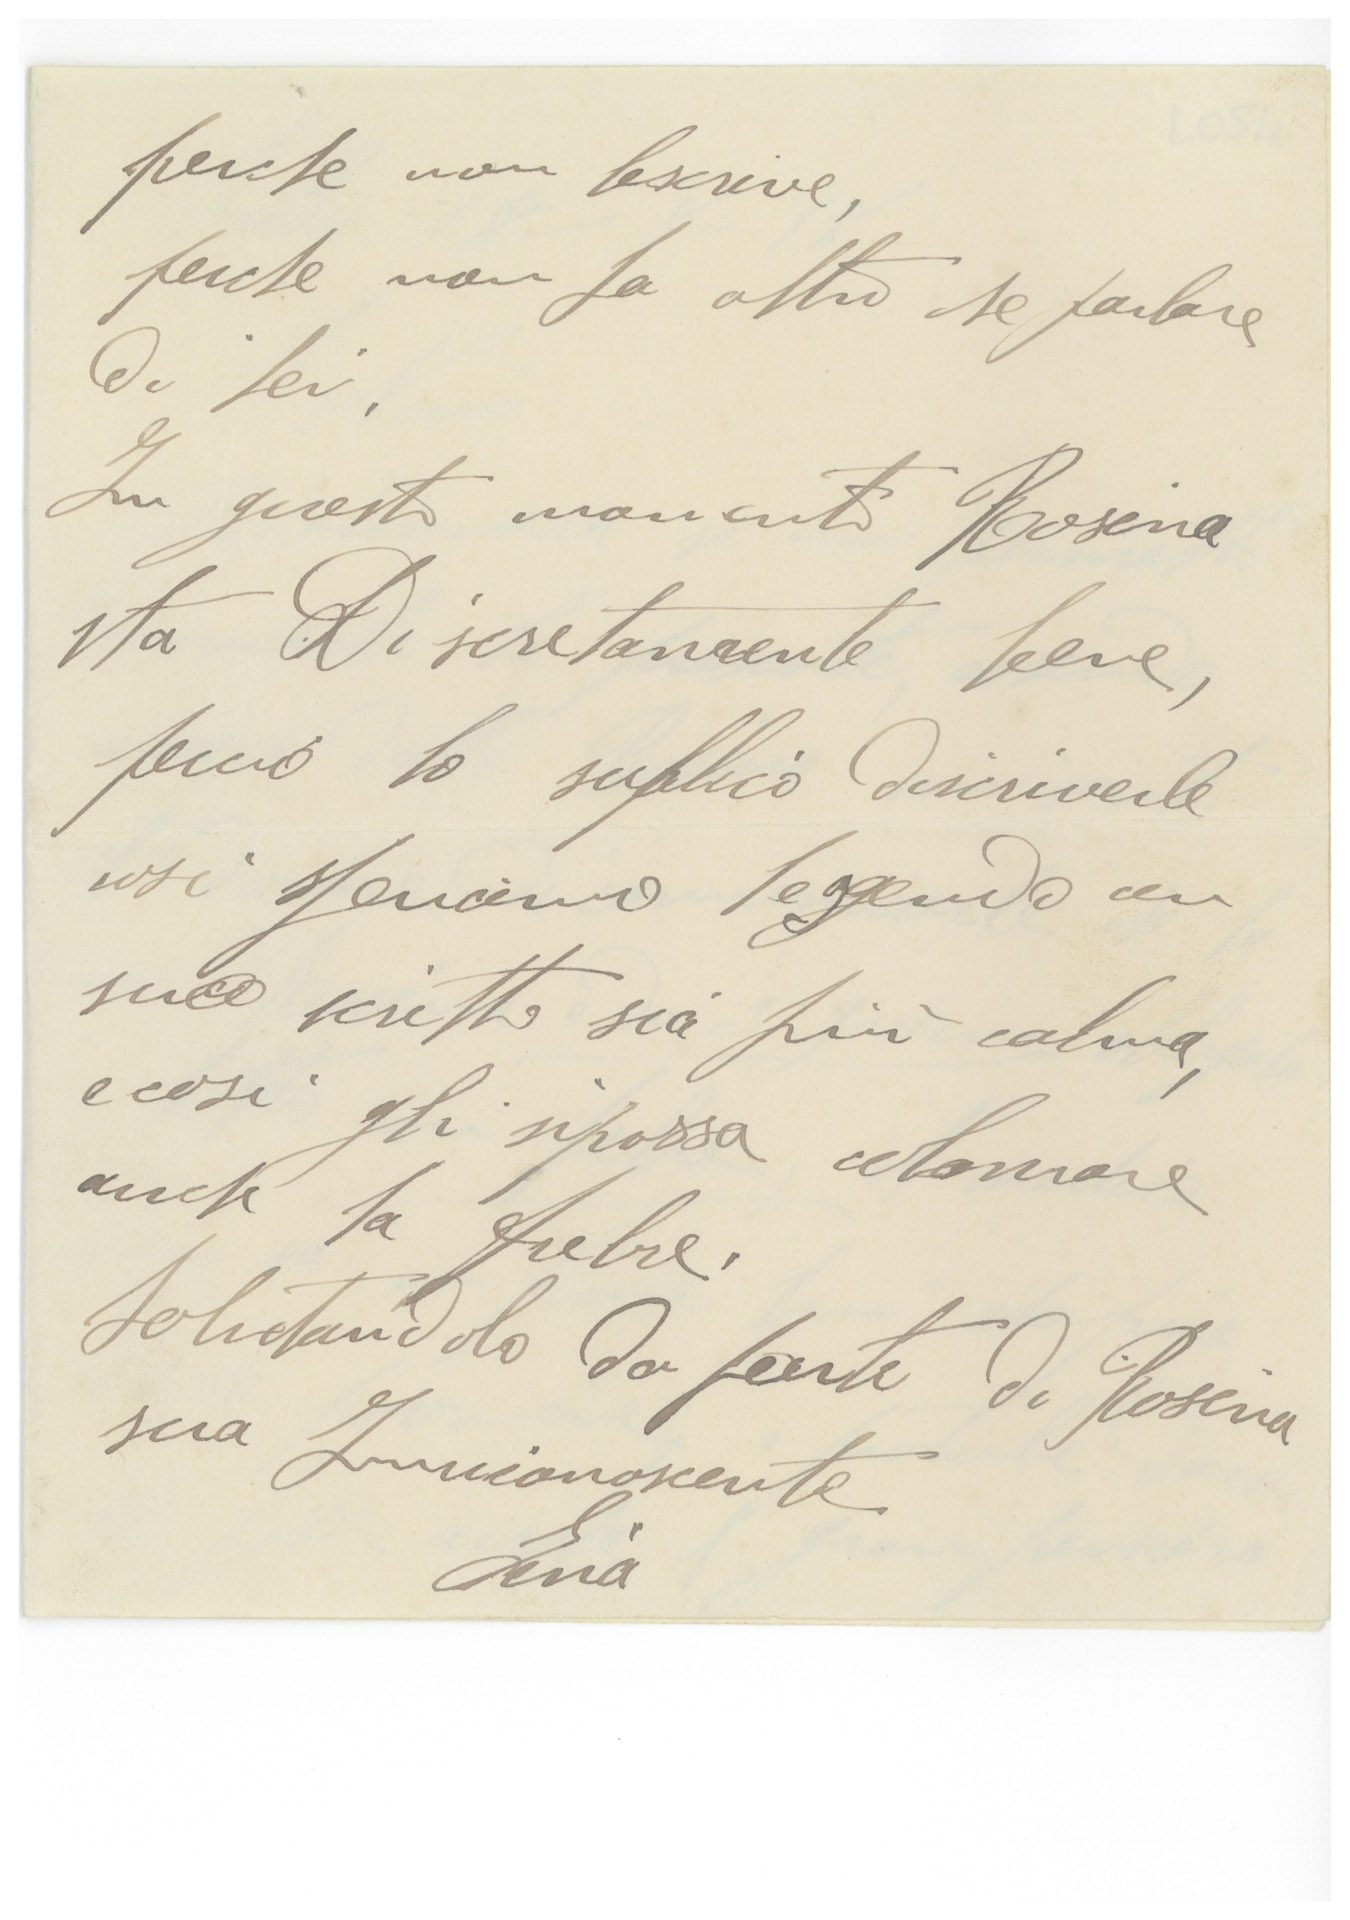 perche non lescrive,
perche non fa altro che parlare
di lei.
In questo momento Rosina
sta Discretamente bene,
perciò lo suplico discriverle
cosi speriamo leggendo un
suo scritto sia più calma,
e cosi gli sipossa calmare
anche la febre.
Solutandolo da parte di Rosina
sua Inriconoscente